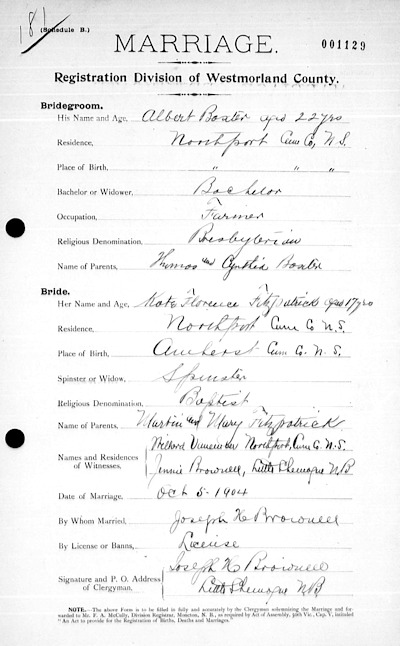 181
(Schedule B.)
MARRIAGE.
001129
Registration Division of Westmorland County.
Bridegroom.
His Name and Age, Albert Baxter aged 22 yrs
Residence, Northport Cum Co, N.S.
Place of Birth, " " "
Bachelor or Widower, Bachelor
Occupation, Farmer
Religious Denomination, Presbyterian
Name of Parents, Thomas and Cynthia Baxter
Bride.
Her Name and Age, Kate Florence Fitzpatrick aged 17 yrs
Residence, Northport Cum Co N.S.
Place of Birth, Amherst Cum Co. N.S.
Spinster or Widow, Spinster
Religious Denomination, Baptist
Name of Parents, Martin and Mary Fitzpatrick
Names and Residences of Witnesses. Northport, Cum Co. N.S.
Jennie Brownell, Little Shemogue N.B
Date of Marriage, Oct 5-1904
By Whom Married, Joseph H Brownell
By License or Banns, License
Signature and P. O. Address of Clergyman. Joseph H Brownell
Little Shemogue N.B
NOTE.—The above Form is to be filled in fully and accurately by the Clergyman solemnizing the Marriage and for-
warded to Mr. F. A. McCully, Division Registrar, Moncton, N. B., as required by Act of Assembly, 50th Vic., Cap. V, intituled
"An Act to provide for the Registration of Births, Deaths and Marriages."